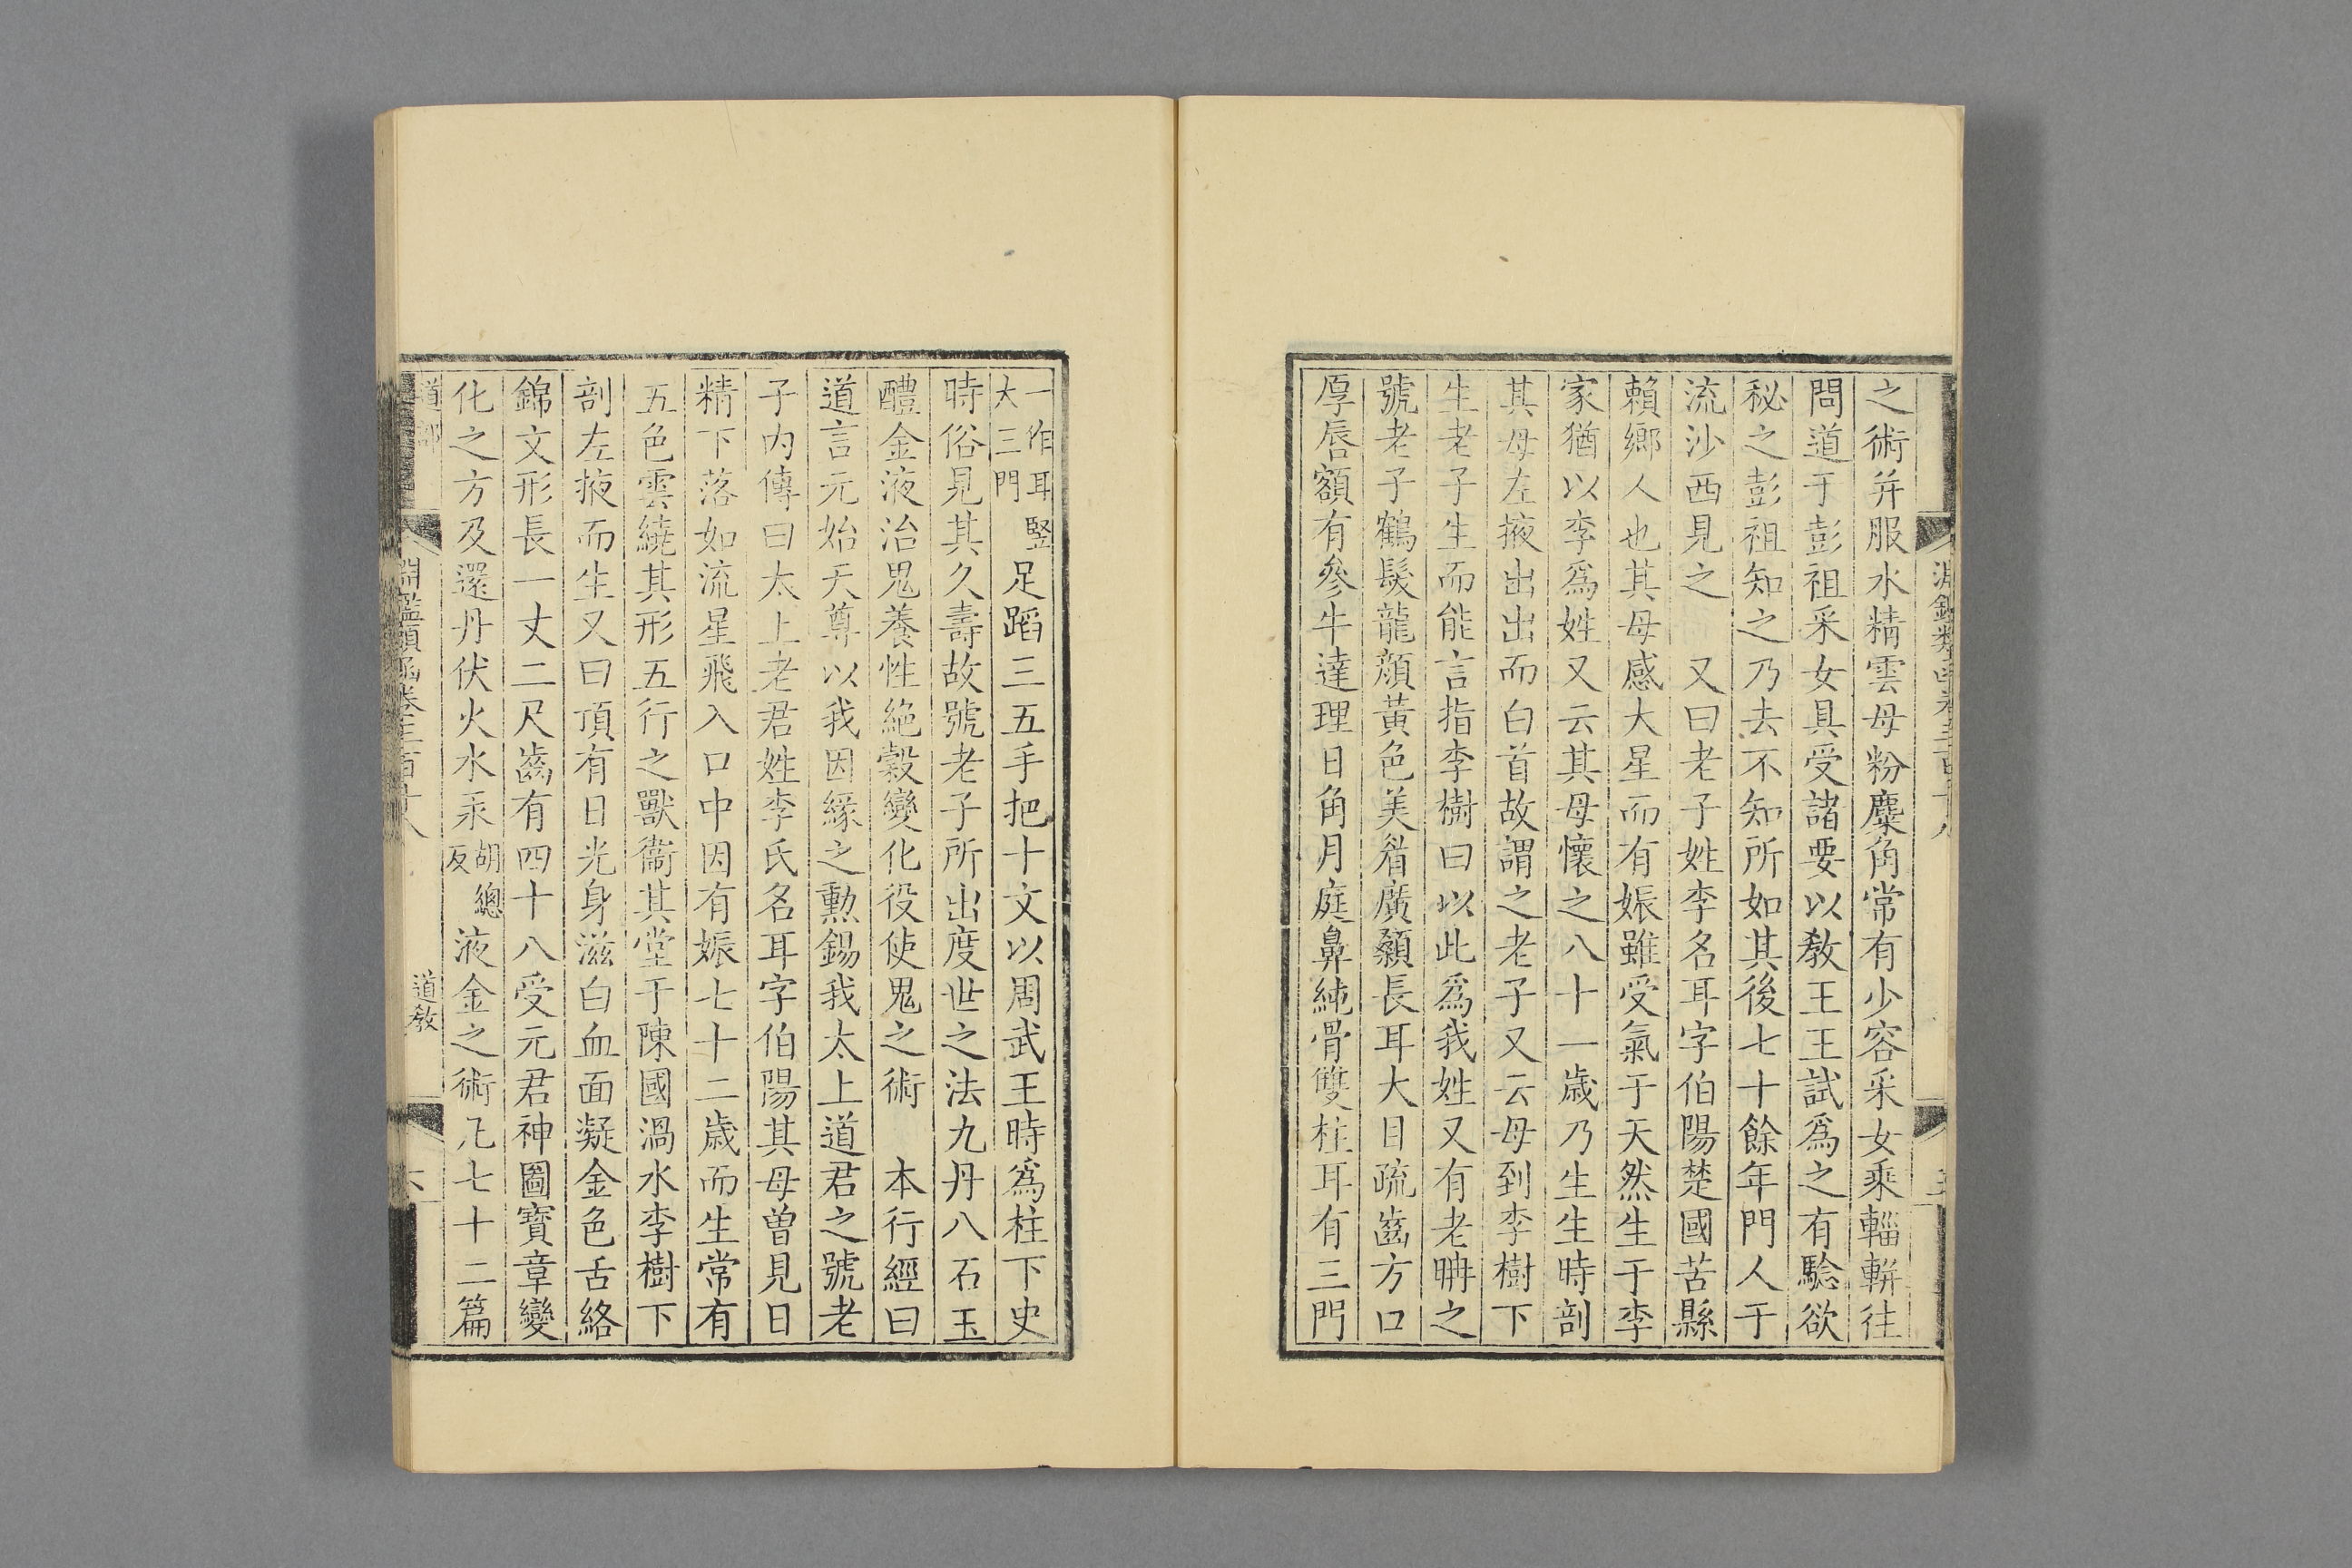 之術并服水精雲母粉麋角常有少容采女乘輜軿往
問道于彭祖采女具受諸要以敎王王試爲之有驗欲
秘之彭祖知之乃去不知所如其後七十餘年門人于
流沙西見之　又曰老子姓李名耳字伯陽楚國苦縣
賴鄉人也其母感大星而有娠雖受氣于天然生于李
家猶以李爲姓又云其母懷之八十一歲乃生生時剖
其母左掖出出而白首故謂之老子又云母到李樹下
生老子生而能言指李樹曰以此爲我姓又有老聃之
號老子鶴髮龍顏黃色美眉廣顙長耳大目疏齒方口
厚唇額有參牛達理日角月庭鼻純骨雙柱耳有三門
一作耳豎
大三門
足蹈三五手把十文以周武王時爲柱下史
時俗見其久壽故號老子所出度世之法九丹八石玉
醴金液治鬼養性絶穀變化役使鬼之術　本行經曰
道言元始天尊以我因緣之勳錫我太上道君之號老
子内傳曰太上老君姓李氏名耳字伯陽其母曽見日
精下落如流星飛入口中因有娠七十二歲而生常有
五色雲繞其形五行之獸衞其堂于陳國渦水李樹下
剖左掖而生又曰頂有日光身滋白血面凝金色舌絡
錦文形長一丈二尺齒有四十八受元君神圖寶章變
化之方及還丹伏火水汞
胡總
反
液金之術凡七十二篇
道部
淵鑑類函卷三百十八
道敎
六